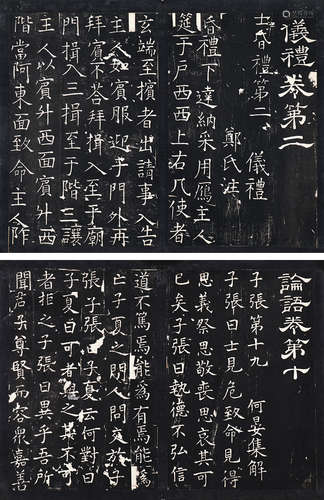 儀禮卷第二
士昏禮第二　儀禮　鄭氏注
昏禮下達納采用鴈主人
筵于戶西西上右几使者
玄端至擯者出請事入告
主人如賓服迎于門外再
拜賓不荅拜揖入至于廟
門揖入三揖至于階三讓
主人以賓升西面賓升西
階當阿東面致命主人阼
論語卷第十
子張第十九　何晏集解
子張曰士見危致命見得
思義祭思敬喪思哀其可
已矣子張曰執德不弘信
道不篤焉能為有焉能為
亡子夏之門人問交於子
張子張曰子夏云何對曰
子夏曰可者與之其不可
者拒之子張曰異乎吾所
聞君子尊賢而容眾嘉善